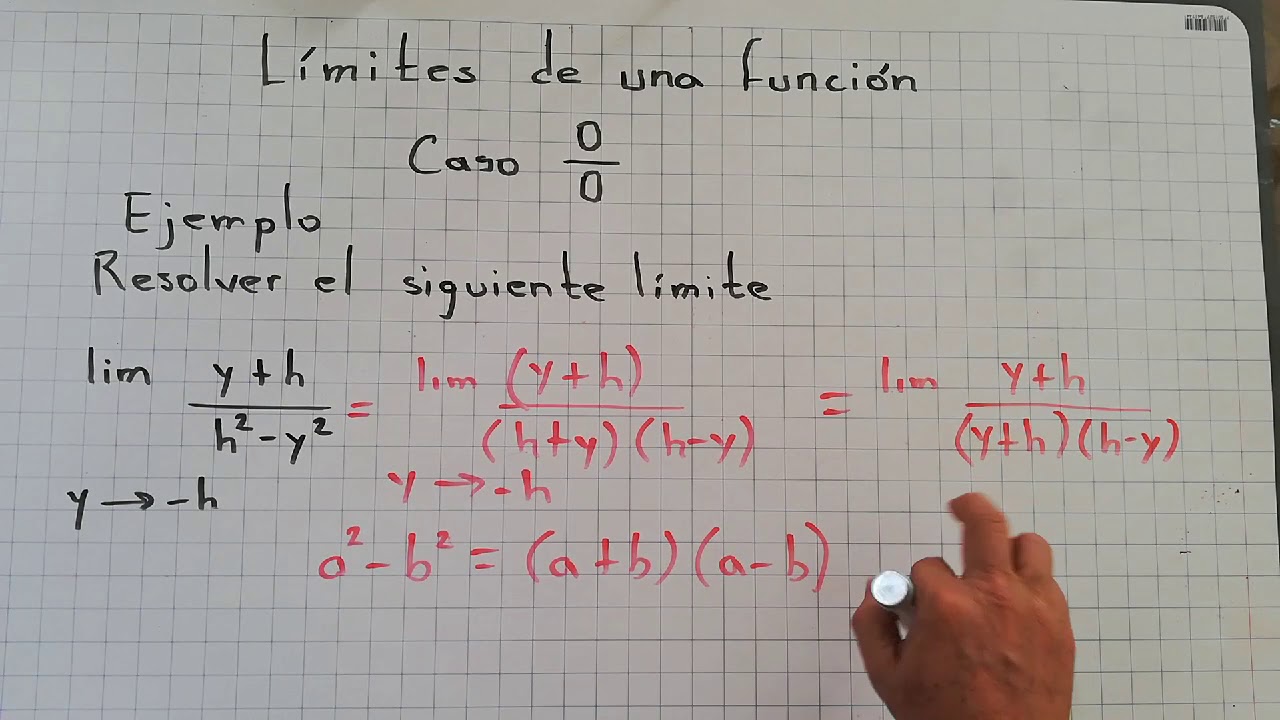 Límites de una función
Caso 0/0
Ejemplo
Resolver el siguiente límite
lim (y+h)/(h²-y²) = lim (y+h)/((h+y)(h-y)) = lim (y+h)/((y+h)(h-y))
y → -h y → -h
a² - b² = (a+b)(a-b)